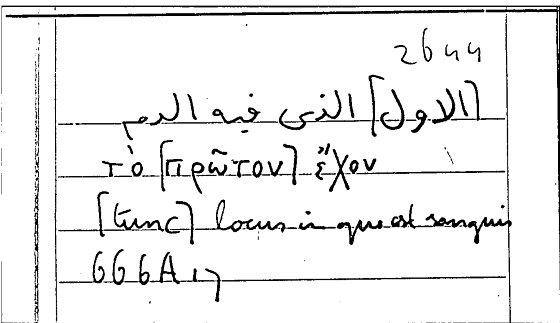 2644
[الاول] الذى فيه الدم
τὸ [πρῶτον] ἔχον
[tunc] locus in quo est sanguis
666A 17